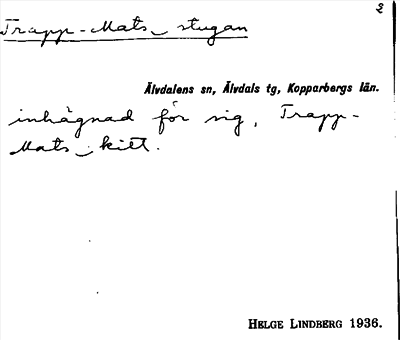 2
Trapp-Mats stugan
Älvdalens sn, Älvdals tg, Kopparbergs län.
inhägnad för sig, Trapp-
Mats kitt.
HELGE LINDBERG 1936.